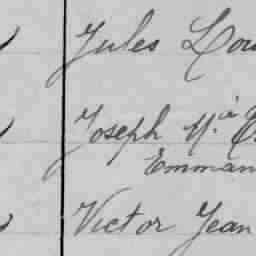 Jules Lou
Joseph M.a E
Emman
Victor Jean